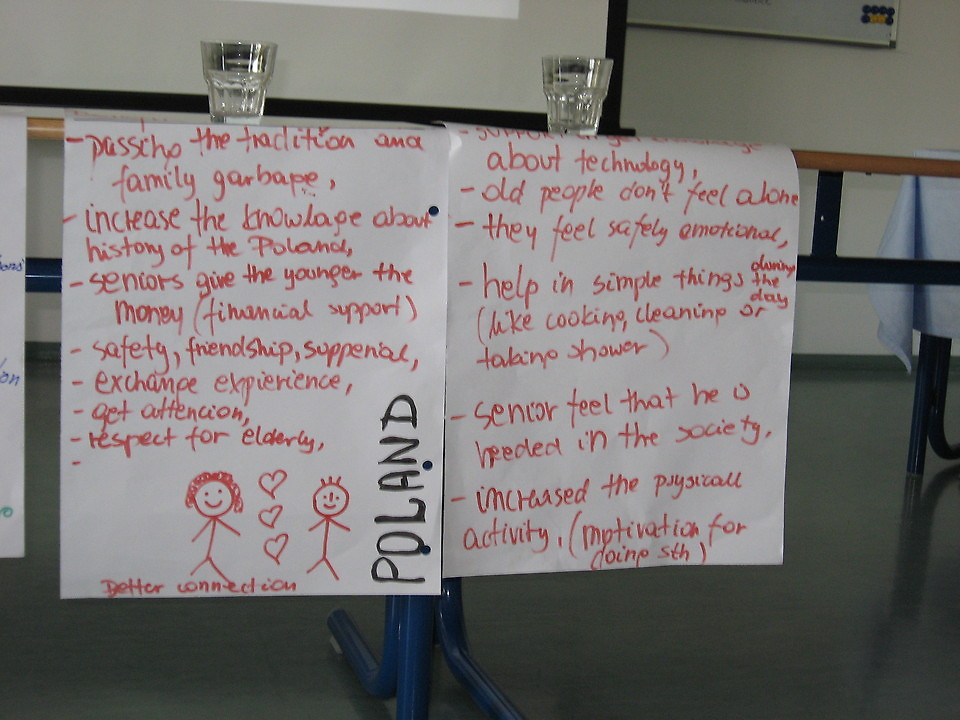 - passing the tradition and
family garbage,
- increase the knowlage about
history of the Poland,
- seniors give the younger the
money (financial support)
- safety, friendship, suppenial,
- exchange expierience,
- get attencion,
- respect for elderly,
-
Better connection
POLAND
about technology,
- old people don't feel alone
- they feel safely emotional,
- help in simple things during the day
(like cooking, cleaning or
taking shower)
- senior feel that he is
needed in the society,
- increased the pysicall
activity, (motivation for
doing sth)